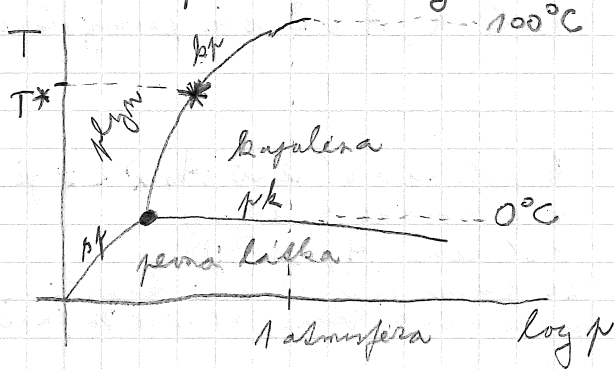 T
100°C
kp
T*
plyn
kapalina
pk
0°C
pp
pevná látka
1 atmosféra
log p